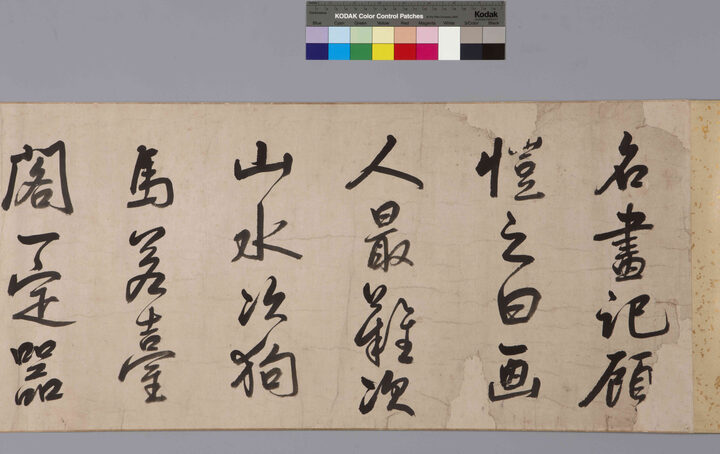 KODAK Color Control Patches
Kodak
Blue Cyan Green Yellow Red Magenta White 3/Color Black
名畫記顧
愷之曰画
人最難次
山水次狗
馬若臺
閣一定器